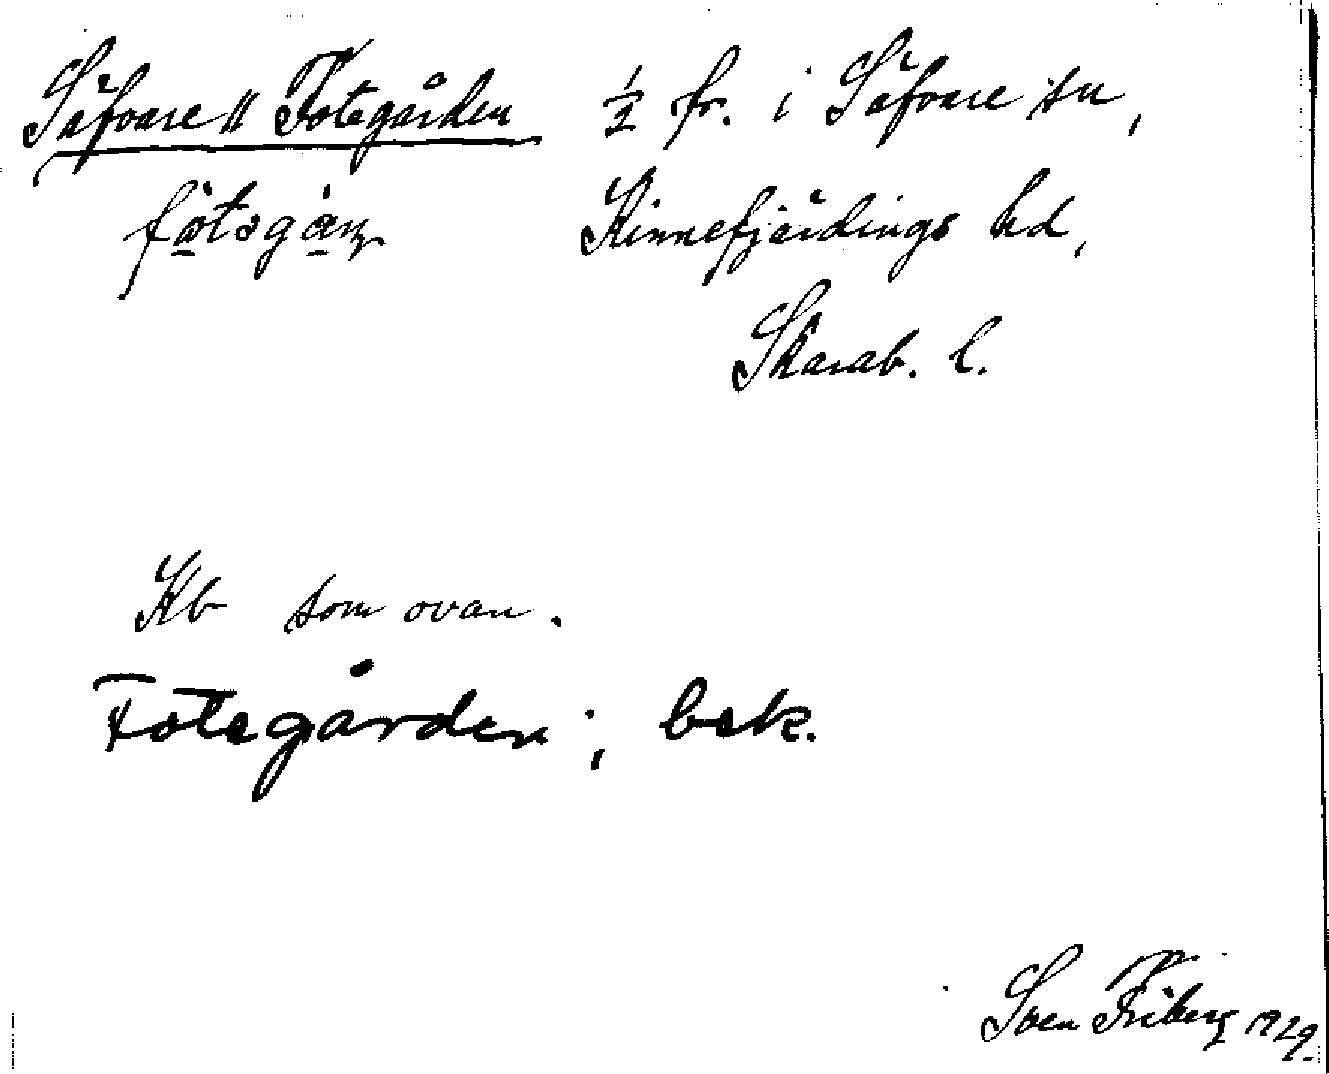 Säfvare " Fotegården ½ fr. i Säfvare sn,
fo̱təgá̱ṇ Kinnefjärdings hd,
Skarab. l.
Kb som ovan.
Fotegården; bek.
Sven Friberg 1929.